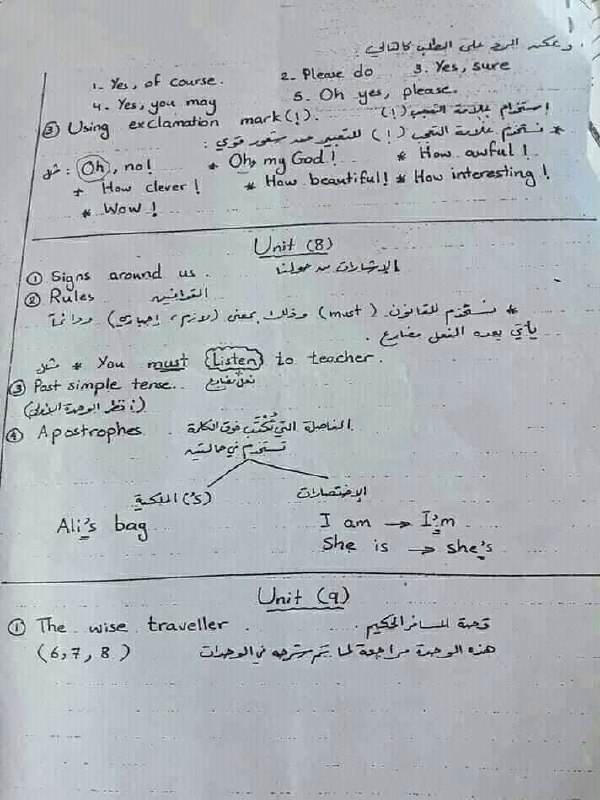 ويمكن الرد على الطلب كالتالي:
1. Yes, of course. 2. Please do 3. Yes, sure
4. Yes, you may 5. Oh yes, please.
③ Using exclamation mark (!). استخدام علامة التعجب (!)
* نستخدم علامة التعجب (!) للتعبير عند شعور قوي:
مثل: Oh, no! * Oh, my God! * How awful!
+ How clever! * How beautiful! * How interesting!
* Wow!
Unit (8)
① Signs around us. الإشارات من حولنا
② Rules القوانين
* نستخدم للقانون (must) وذلك بمعنى (لازم، إجباري) ودائماً
يأتي بعده الفعل مضارع.
مثل * You must (Listen) to teacher.
فعل مضارع
③ Past simple tense..
(أنظر الوحدة الأولى)
④ Apostrophes الفاصلة التي تُكْتَب فوق الكلمة
تستخدم في حالتين
الملكية ('s) الإختصارات
Ali's bag I am → I'm
She is → she's
Unit (9)
① The wise traveller. قصة المسافر الحكيم
هذه الوحدة مراجعة لما يتم شرحه في الوحدات (6, 7, 8)